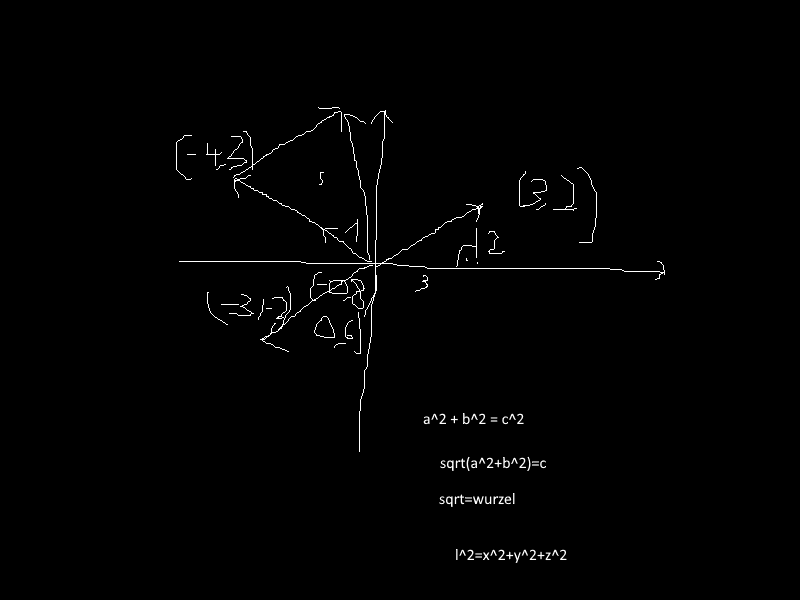 (-4,3)
s
(3,2)
-1
2
3
(-3,-2)
a^2 + b^2 = c^2
sqrt(a^2+b^2)=c
sqrt=wurzel
l^2=x^2+y^2+z^2